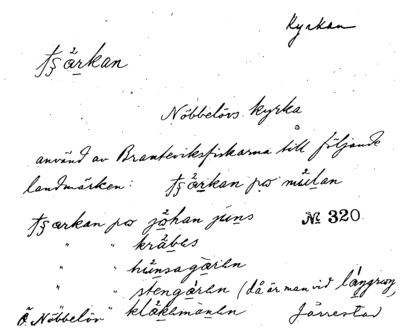 Kyrkan
tʂärkan
Nöbbelövs kyrka
använd av Branteviksfiskarna till följande
landmärken: tʂärkan på mủlan
tʂarkan på jåhan juns № 320
" " kråbes
" " hủnsagåren
" " stengåren (då är man vid långrevs
Ö. Nöbbelöv " klåkkemånen Järrestad